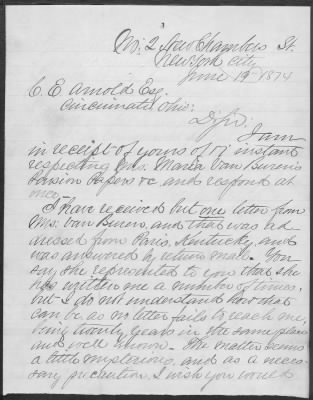 No. 2 New Chambers St.
New York City
June 19" 1874
C. E. Arnold Esq.
Cincinnati Ohio:
D/Sir.
I am
in receipt of yours of 17' instant
respecting Mrs. Maria Van Buren's
Pension Papers &c, and respond at
once.
I have received but one letter from
Mrs. Van Buren, and that was ad
dressed from Paris, Kentucky, and
was answered by return mail. You
say she represented to you that she
has written me a number of times,
but I do not understand how that
can be as no letter fails to reach me,
being twenty years in the same place
and well known. The matter seems
a little mysterious, and as a neces
sary precaution I wish you would